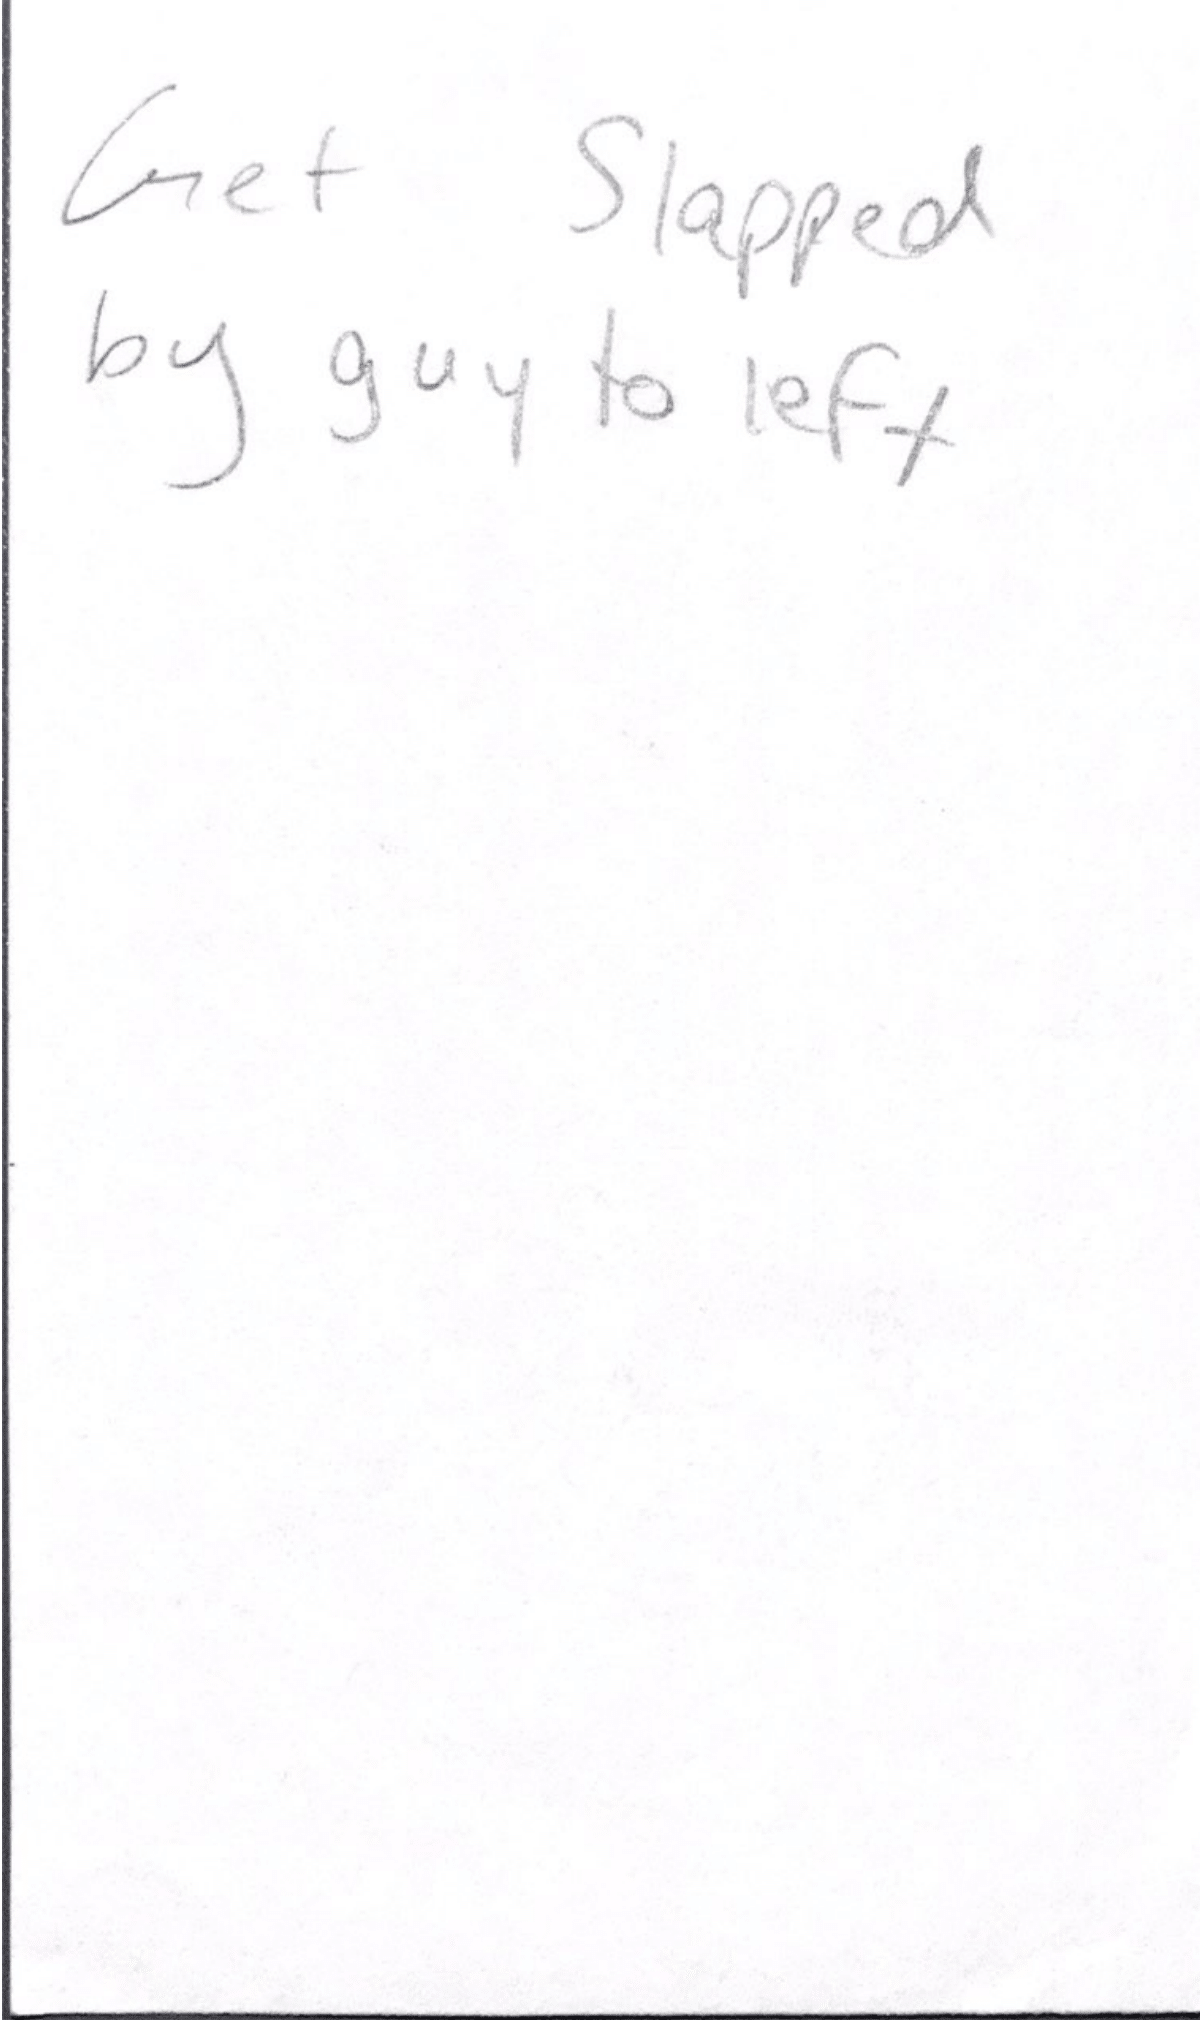 Get Slapped
by guy to left